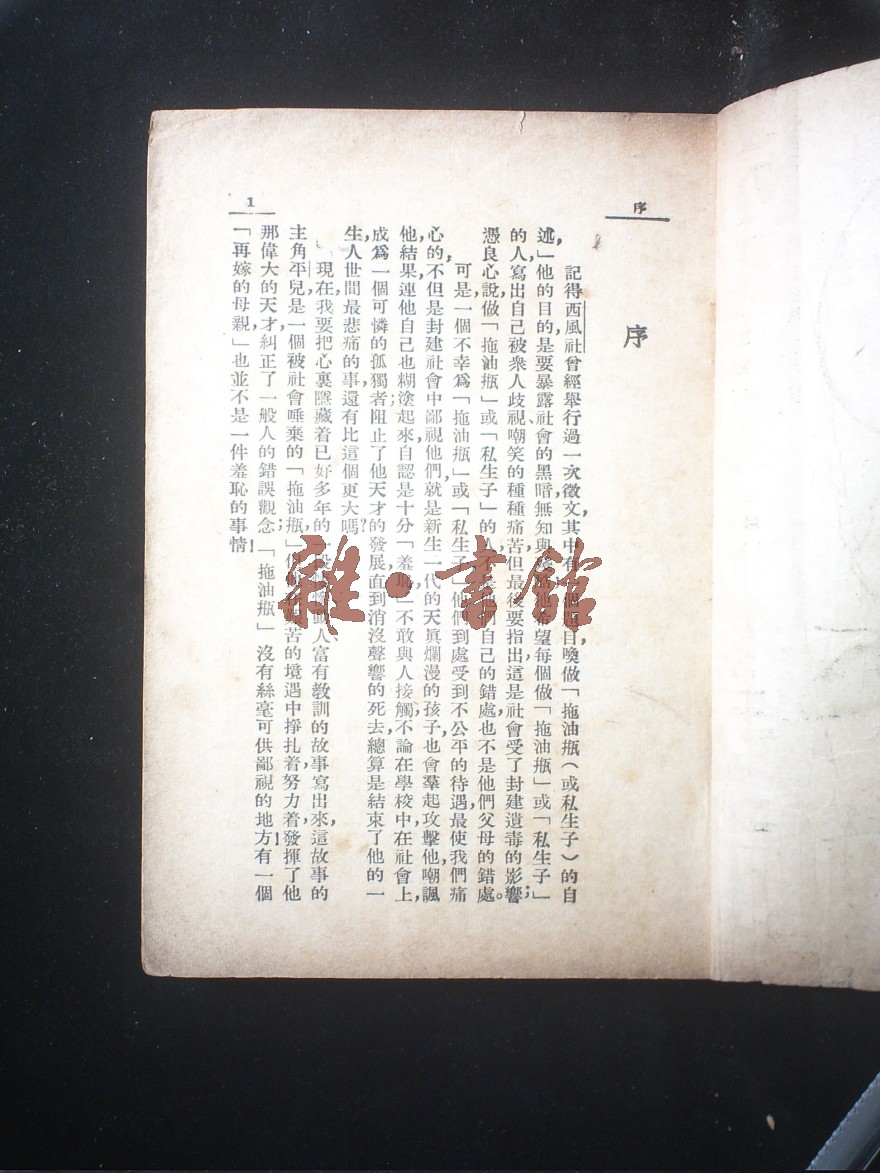 序
序
記得西風社曾經舉行過一次徵文,其中有一個題目喚做「拖油瓶(或私生子)的自
述,」他的目的,是要暴露社會的黑暗無知與 他希望每個做「拖油瓶」或「私生子」
的人,寫出自己被衆人歧視、嘲笑的種種痛苦,但最後要指出,這是社會受了封建遺毒的影響;
憑良心說,做「拖油瓶」或「私生子」的人,不是他們自己的錯處,也不是他們父母的錯處。
可是,一個不幸爲「拖油瓶」或「私生子,」他們到處受到不公平的待遇,最使我們痛
心的,不但是封建社會中鄙視他們,就是新生一代的天眞爛漫的孩子,也會羣起攻擊他,嘲諷
他,結果,連他自己也糊塗起來,自認是十分「羞恥,」不敢與人接觸,不論在學校中,在社會上,
成爲一個可憐的孤獨者;阻止了他天才的發展,直到消沒聲響的死去,總算是結束了他的一
生,人世間最悲痛的事,還有比這個更大嗎?
現在,我要把心裏隱藏着已好多年的一段 動人、富有教訓的故事寫出來,這故事的
主角平兒,是一個被社會唾棄的「拖油瓶;」 苦的境遇中,掙扎着,努力着,發揮了他
那偉大的天才,糾正了一般人的錯誤觀念,「拖油瓶」沒有絲毫可供鄙視的地方!有一個
「再嫁的母親」也並不是一件羞恥的事情!
1
雜·書館